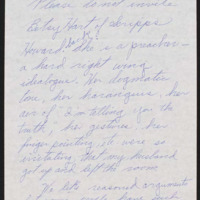 Please do not invite
Betsy Hart of Scripps
Howard back. She is a preacher -
a hard right wing
ideologue. Her dogmatic
tone, her harangues, her
use of "I'm telling you the
truth," her gestures, her
finger pointing etc were so
irritating that my husband
got up and left the room.
We like reasoned arguments